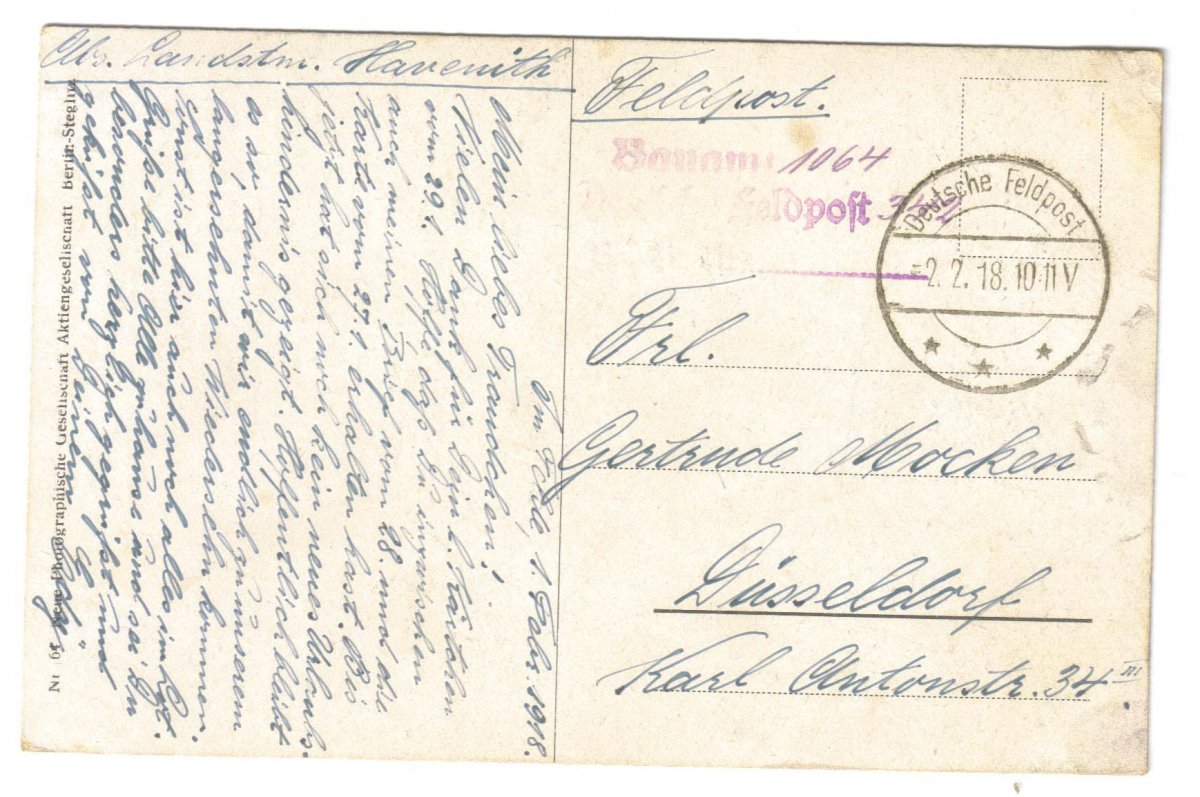 Abs. Landstm. Havenith
Im Felde, 1. Febr. 1918.
Mein liebes Traudchen!
Vielen Dank für Dein l. Kärtchen
vom 29.1. Hoffe, daß Du inzwischen
auch meinen Brief vom 28. und die
Karte vom 27.1. erhalten hast. Bis
jetzt hat sich noch kein neues Urlaubs-
hindernis gezeigt. Hoffentlich bleibt
es so, damit wir endlich zu unserem
langersehnten Wiedersehn kommen.
Sonst ist hier auch noch alles im Lot.
Grüße bitte Alle zuhause und sei Du
besonders herzlich gegrüßt und
geküßt von Deinem
Nr 6 Neue Photographische Gesellschaft Aktiengesellschaft Berlin-Steglitz
Feldpost.
Bauamt 1064
Feldpost 342
Deutsche Feldpost
-2.2.18.10-11V
Frl.
Gertrude Mocken
Düsseldorf
Karl Antonstr. 34 III.